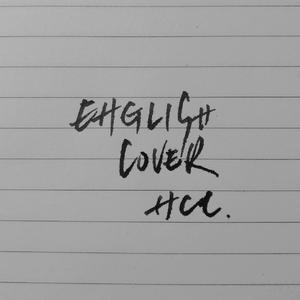 EHGLISH
COVER
HCL.